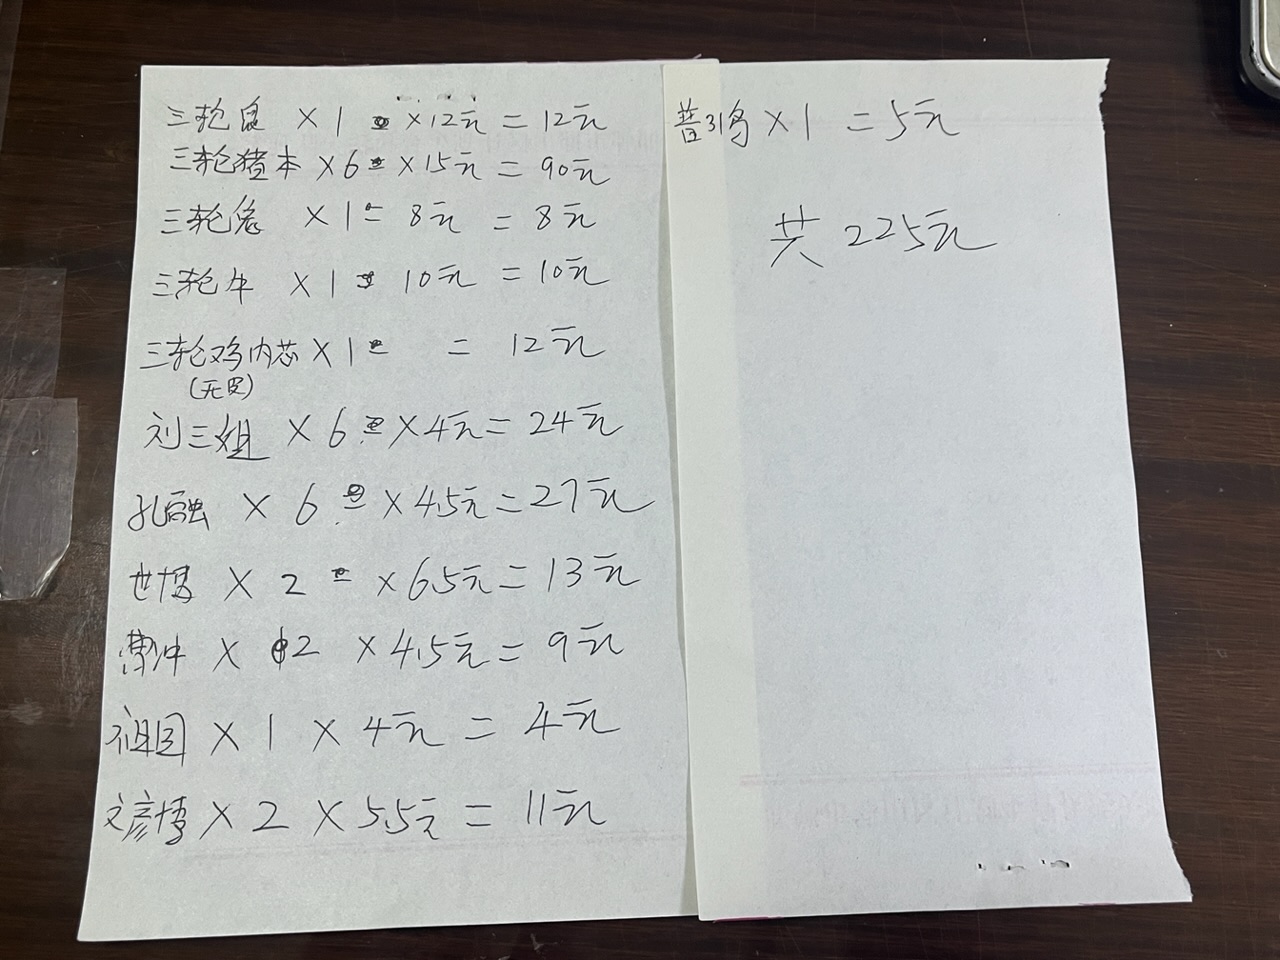 三轮鼠 × 1 × 12元 = 12元
三轮猪本 × 6 × 15元 = 90元
三轮兔 × 1 = 8元 = 8元
三轮牛 × 1 10元 = 10元
三轮鸡内芯 × 1 = 12元
(无皮)
刘三姐 × 6 × 4元 = 24元
孔融 × 6 × 4.5元 = 27元
世博 × 2 × 6.5元 = 13元
曹冲 × 2 × 4.5元 = 9元
祖国 × 1 × 4元 = 4元
文彦博 × 2 × 5.5元 = 11元
普31鸟 × 1 = 5元
共 225元